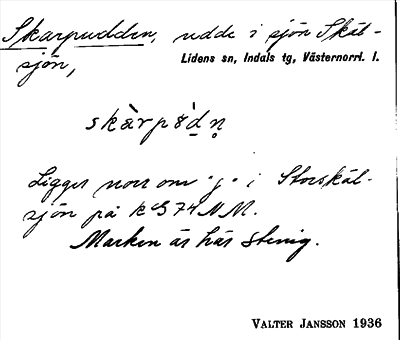 Skarpudden, udde i sjön Skäl-
sjön, Lidens sn, Indals tg, Västernorrl. l.
skàrpù̀dn̥
Ligger norr om "j" i Storskäl-
sjön på KG 74 NM.
Marken är här stenig.
VALTER JANSSON 1936